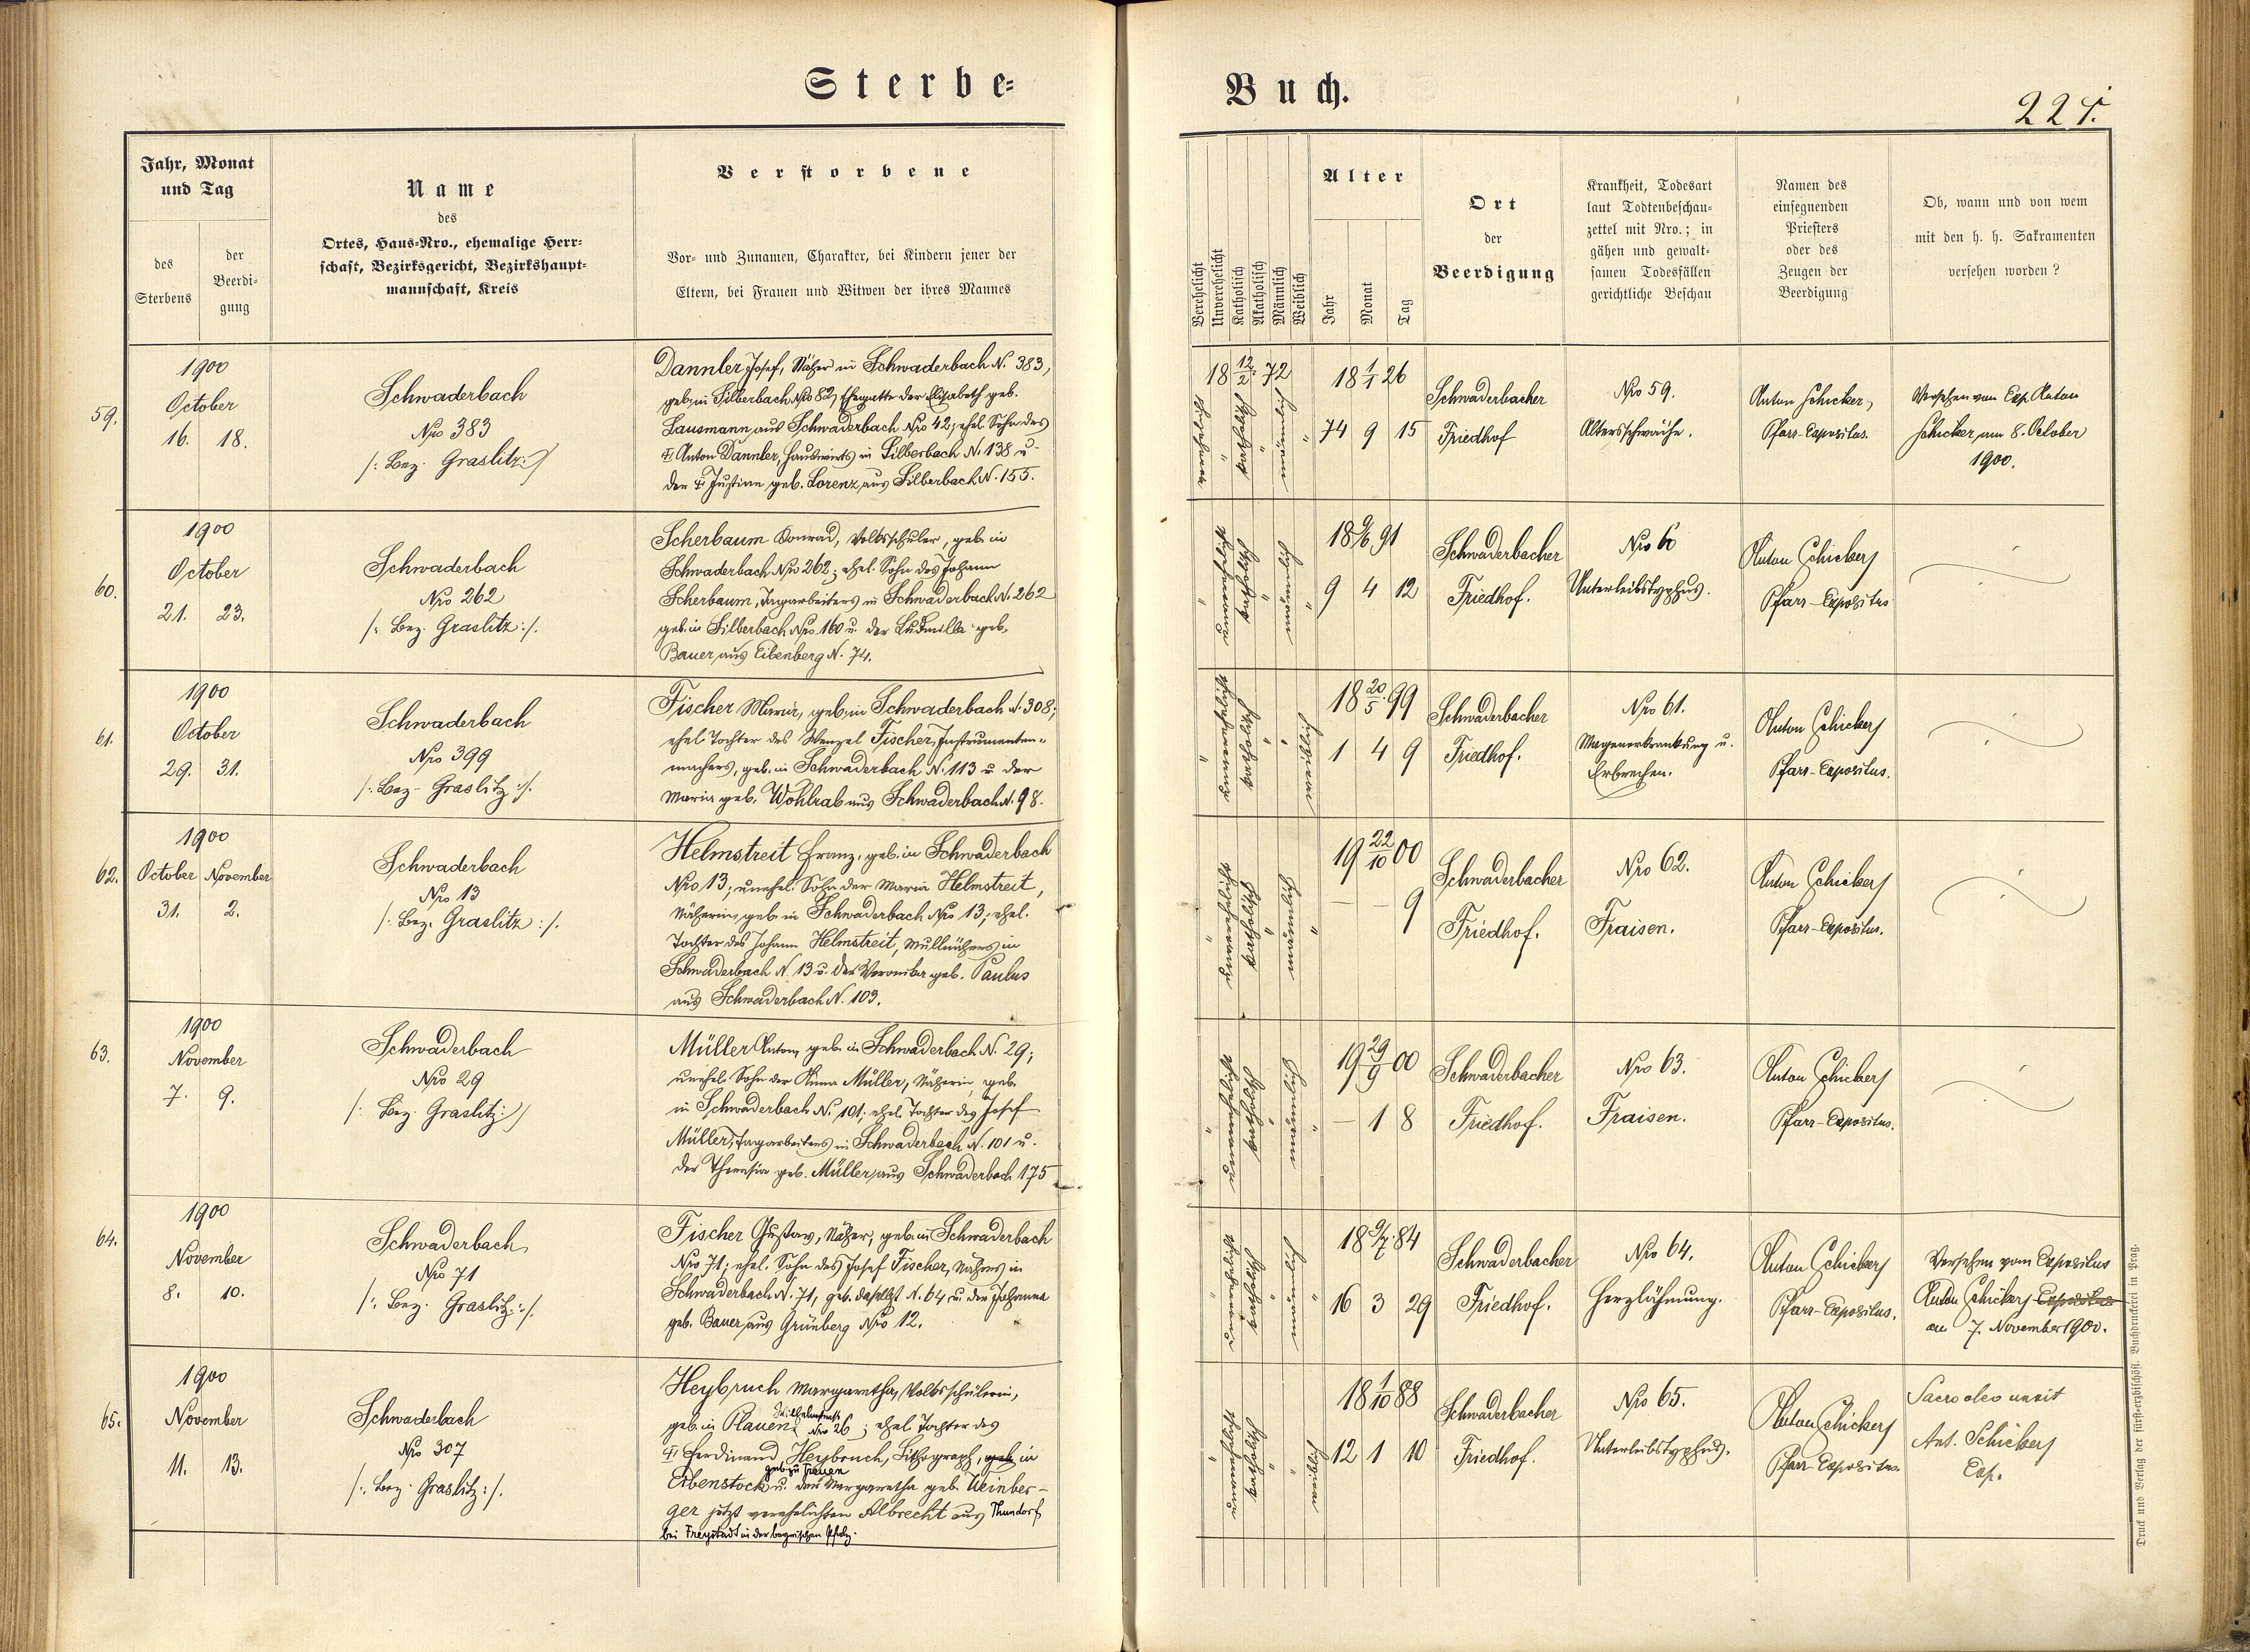 Sterbe=
Buch.
Jahr, Monat
und Tag
des
Sterbens
der
Beerdi-
gung
Name
des
Ortes, Haus-Nro., ehemalige Herr-
schaft, Bezirksgericht, Bezirkshaupt-
mannschaft, Kreis
Verstorbene
Vor- und Zunamen, Charakter, bei Kindern jener der
Eltern, bei Frauen und Witwen der ihres Mannes
Verehelicht
Unverehelicht
Katholisch
Akatholisch
Männlich
Weiblich
Alter
Jahr
Monat
Tag
Ort
der
Beerdigung
Krankheit, Todesart
laut Todtenbeschau-
zettel mit Nro.; in
gähen und gewalt-
samen Todesfällen
gerichtliche Beschau
Namen des
einsegnenden
Priesters
oder des
Zeugen der
Beerdigung
Ob, wann und von wem
mit den h. h. Sakramenten
versehen worden?
59.
1900
October
16. 18.
Schwaderbach
Nro 383
/: Bez. Graslitz :/
Dannler Josef, Näher in Schwaderbach N. 383,
geb. in Silberbach Nro 82, Ehegatte der Elisabeth geb.
Lausmann aus Schwaderbach Nro 42; ehel. Sohn des
† Anton Dannler, Hauswirts in Silberbach N. 138 u
der † Justine geb. Lorenz aus Silberbach N. 155.
18 1/1 26
74 9 15
Schwaderbacher
Friedhof
Nro 59.
Altersschwäche.
Anton Schicker,
Pfarr-Expositus.
Versehen vom Exp. Anton
Schicker am 8. October
1900.
60.
1900
October
21. 23.
Schwaderbach
Nro 262
/: Bez. Graslitz :/.
Scherbaum Konrad, Volksschüler, geb. in
Schwaderbach Nro 262; ehel. Sohn des Johann
Scherbaum, Tagarbeiters in Schwaderbach N. 262
geb. in Silberbach Nro 160 u. der Ludmilla geb.
Bauer aus Eibenberg N. 74.
18 9/6 91
9 4 12
Schwaderbacher
Friedhof.
Nro 60
Unterleibstyphus.
Anton Schicker
Pfarr-Expositus
61.
1900
October
29. 31.
Schwaderbach
Nro 399
/: Bez. Graslitz :/.
Fischer Maria, geb. in Schwaderbach N. 308;
ehel. Tochter des Wenzel Fischer, Instrumenten-
machers, geb. in Schwaderbach N. 113 u. der
Maria geb. Wohlrab aus Schwaderbach N. 98.
18 20/5 99
1 4 9
Schwaderbacher
Friedhof.
Nro 61.
Magenerkrankung u.
Erbrechen.
Anton Schicker
Pfarr-Expositus.
62.
1900
October November
31. 2.
Schwaderbach
Nro 13
/: Bez. Graslitz :/.
Helmstreit Franz, geb. in Schwaderbach
Nro 13; unehel. Sohn der Maria Helmstreit,
Näherin, geb. in Schwaderbach Nro 13; ehel.
Tochter des Johann Helmstreit, Mullnähers in
Schwaderbach N. 13 u. der Veronika geb. Paulus
aus Schwaderbach N. 103.
19 22/10 00
– – 9
Schwaderbacher
Friedhof.
Nro 62.
Fraisen.
Anton Schicker
Pfarr-Expositus.
63.
1900
November
7. 9.
Schwaderbach
Nro 29
/: Bez. Graslitz :/
Müller Anton, geb. in Schwaderbach N. 29;
unehel. Sohn der Anna Müller, Näherin, geb.
in Schwaderbach N. 101; ehel. Tochter des Josef
Müller, Tagarbeiters in Schwaderbach N. 101 u.
der Theresia geb. Müller aus Schwaderbach 175
19 29/9 00
– 1 8
Schwaderbacher
Friedhof.
Nro 63.
Fraisen.
Anton Schicker
Pfarr-Expositus.
64.
1900
November
8. 10.
Schwaderbach
Nro 71
/: Bez. Graslitz :/.
Fischer Gustav, Näher, geb. in Schwaderbach
Nro 71; ehel. Sohn des Josef Fischer, Nähers in
Schwaderbach N. 71, geb. daselbst N. 64 u. der Johanna
geb. Bauer aus Grünberg Nro 12.
18 9/7 84
16 3 29
Schwaderbacher
Friedhof.
Nro 64.
Herzlähmung.
Anton Schicker
Pfarr-Expositus.
Versehen vom Expositus
Anton Schicker Expositus
am 7. November 1900.
65.
1900
November
11. 13.
Schwaderbach
Nro 307
/: Bez. Graslitz :/.
Heybruch Margaretha, Volksschülerin,
geb. in Plauen, Nro 26; ehel. Tochter des
† Ferdinand Heybruch, Lithograph, geb. in
Eibenstock u. der Margaretha geb. Weinber-
ger jetzt verehelichten Albrecht aus Thundorf
bei Freystadt in der bayrischen Pfalz.
18 1/10 88
12 1 10
Schwaderbacher
Friedhof.
Nro 65.
Unterleibstyphus.
Anton Schicker
Pfarr-Expositus.
Sacro oleo unxit
Ant. Schicker
Exp.
Druck und Verlag der fürst-erzbischöfl. Buchdruckerei in Prag.